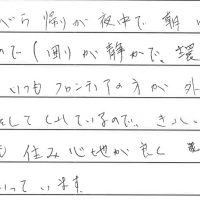 べら 帰りが夜中で 朝
ので(周りが静かで、環
いつもフロンティアの方が外
をしてくれているので、きれい
も 住み心地が良く
いっています